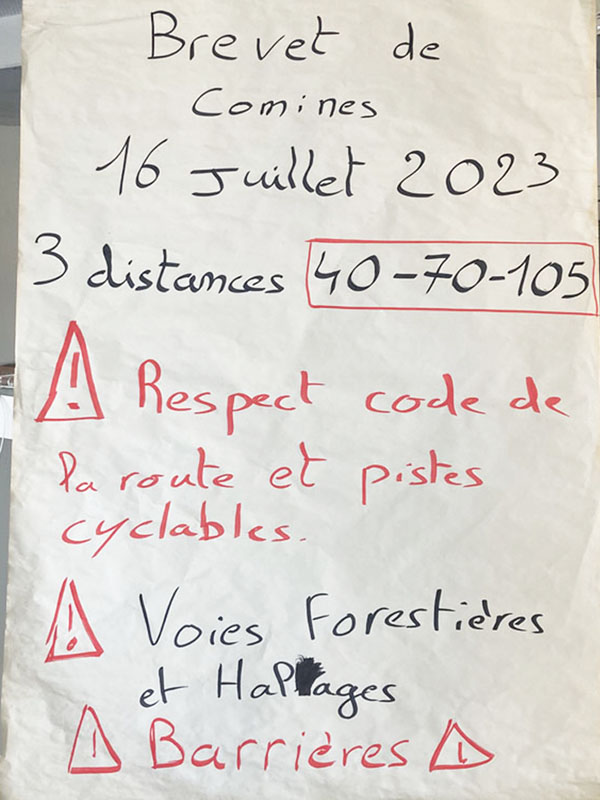 Brevet de
Comines
16 Juillet 2023
3 distances 40-70-105
! Respect code de
la route et pistes
cyclables.
! Voies Forestières
et Halages
! Barrières !